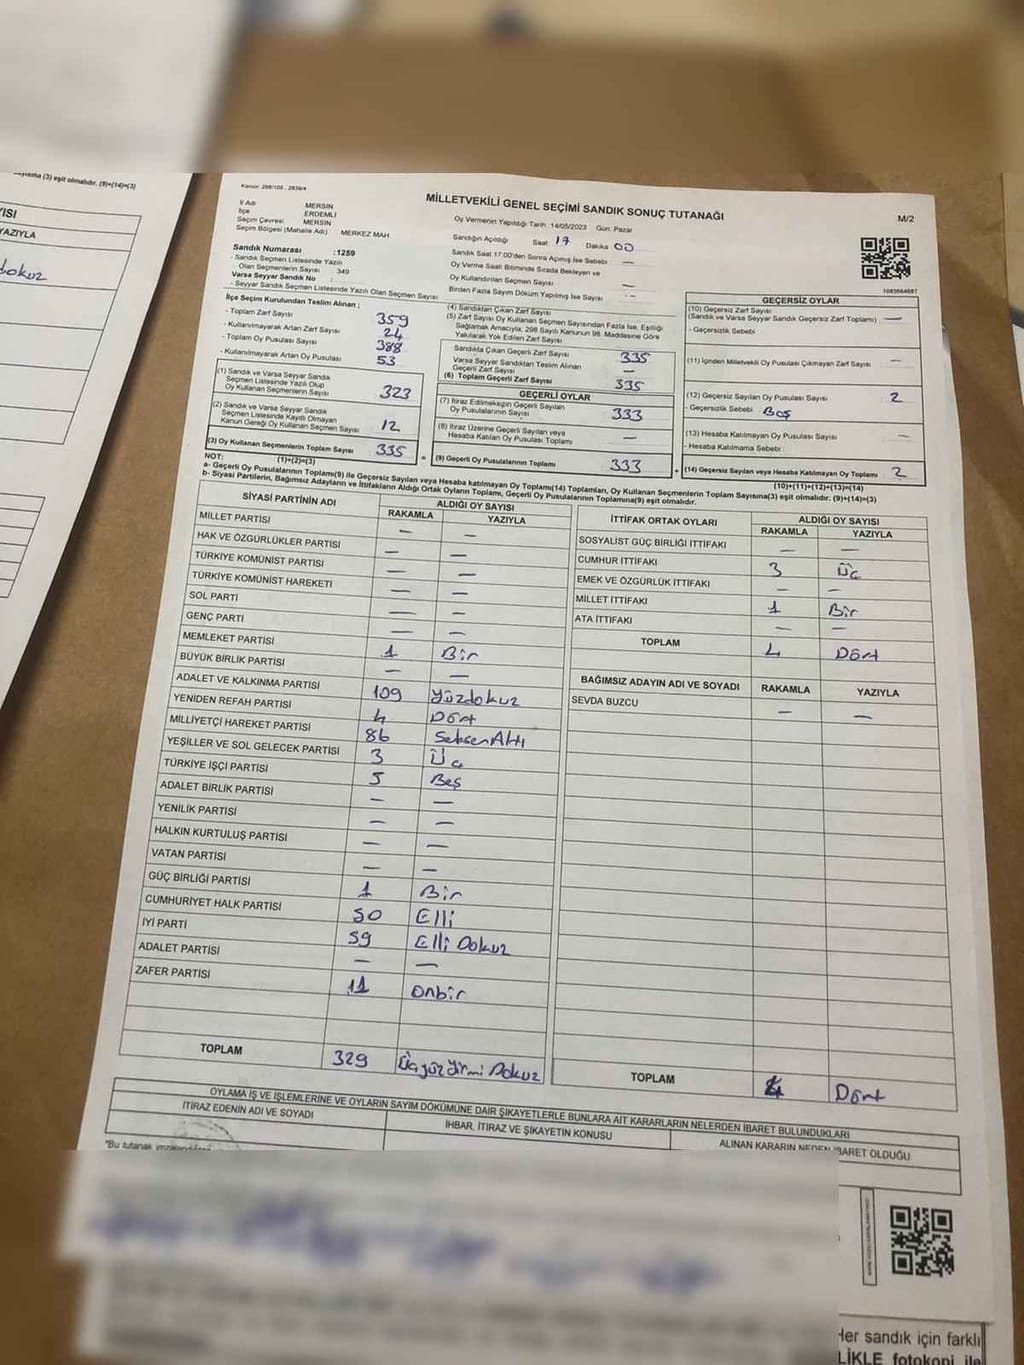 ayısına (3) eşit olmalıdır. (9)+(14)=(3)
YISI
YAZIYLA
dokuz
Kanun: 298/105 , 2839/4
MİLLETVEKİLİ GENEL SEÇİMİ SANDIK SONUÇ TUTANAĞI
M/2
İl Adı MERSİN
İlçe ERDEMLİ
Seçim Çevresi MERSİN
Seçim Bölgesi (Mahalle Adı) MERKEZ MAH
Oy Vermenin Yapıldığı Tarih :14/05/2023 Gün: Pazar
Sandığın Açıldığı Saat 17 Dakika 00
Sandık Saat 17:00'den Sonra Açımış İse Sebebi —
Oy Verme Saati Bitiminde Sırada Bekleyen ve
Oy Kullandırılan Seçmen Sayısı —
Birden Fazla Sayım Döküm Yapılmış İse Sayısı —
Sandık Numarası :1259
- Sandık Seçmen Listesinde Yazılı
Olan Seçmenlerin Sayısı 349
Varsa Seyyar Sandık No :
- Seyyar Sandık Seçmen Listesinde Yazılı Olan Seçmen Sayısı
İlçe Seçim Kurulundan Teslim Alınan ;
- Toplam Zarf Sayısı 359
- Kullanılmayarak Artan Zarf Sayısı 24
- Toplam Oy Pusulası Sayısı 388
- Kullanılmayarak Artan Oy Pusulası 53
(1) Sandık ve Varsa Seyyar Sandık
Seçmen Listesinde Yazılı Olup
Oy Kullanan Seçmenlerin Sayısı 323
(2) Sandık ve Varsa Seyyar Sandık
Seçmen Listesinde Kayıtlı Olmayan
Kanun Gereği Oy Kullanan Seçmen Sayısı 12
(3) Oy Kullanan Seçmenlerin Toplam Sayısı 335
(1)+(2)=(3)
(4) Sandıktan Çıkan Zarf Sayısı
(5) Zarf Sayısı Oy Kullanan Seçmen Sayısından Fazla İse, Eşitliği
Sağlamak Amacıyla, 298 Sayılı Kanunun 98. Maddesine Göre
Yakılarak Yok Edilen Zarf Sayısı
Sandıkta Çıkan Geçerli Zarf Sayısı 335
Varsa Seyyar Sandıktan Teslim Alınan
Geçerli Zarf Sayısı —
(6) Toplam Geçerli Zarf Sayısı 335
GEÇERLİ OYLAR
(7) İtiraz Edilmeksizin Geçerli Sayılan
Oy Pusulalarının Sayısı 333
(8) İtiraz Üzerine Geçerli Sayılan veya
Hesaba Katılan Oy Pusulası Toplamı —
= (9) Geçerli Oy Pusulalarının Toplamı 333
1083664687
GEÇERSİZ OYLAR
(10) Geçersiz Zarf Sayısı
(Sandık ve Varsa Seyyar Sandık Geçersiz Zarf Toplamı) —
- Geçersizlik Sebebi
(11) İçinden Milletvekili Oy Pusulası Çıkmayan Zarf Sayısı —
(12) Geçersiz Sayılan Oy Pusulası Sayısı 2
- Geçersizlik Sebebi Boş
(13) Hesaba Katılmayan Oy Pusulası Sayısı —
- Hesaba Katılmama Sebebi :
+ (14) Geçersiz Sayılan veya Hesaba Katılmayan Oy Toplamı 2
(10)+(11)+(12)+(13)=(14)
NOT:
a- Geçerli Oy Pusulalarının Toplamı(9) ile Geçersiz Sayılan veya Hesaba katılmayan Oy Toplamı(14) Toplamları, Oy Kullanan Seçmenlerin Toplam Sayısına(3) eşit olmalıdır. (9)+(14)=(3)
b- Siyasi Partilerin, Bağımsız Adayların ve İttifakların Aldığı Ortak Oyların Toplamı, Geçerli Oy Pusulalarının Toplamına(9) eşit olmalıdır.
SİYASİ PARTİNİN ADI ALDIĞI OY SAYISI
RAKAMLA YAZIYLA
MİLLET PARTİSİ — —
HAK VE ÖZGÜRLÜKLER PARTİSİ — —
TÜRKİYE KOMÜNİST PARTİSİ — —
TÜRKİYE KOMÜNİST HAREKETİ — —
SOL PARTİ — —
GENÇ PARTİ — —
MEMLEKET PARTİSİ 1 Bir
BÜYÜK BİRLİK PARTİSİ — —
ADALET VE KALKINMA PARTİSİ 109 Yüzdokuz
YENİDEN REFAH PARTİSİ 4 Dört
MİLLİYETÇİ HAREKET PARTİSİ 86 SeksenAltı
YEŞİLLER VE SOL GELECEK PARTİSİ 3 Üç
TÜRKİYE İŞÇİ PARTİSİ 5 Beş
ADALET BİRLİK PARTİSİ — —
YENİLİK PARTİSİ — —
HALKIN KURTULUŞ PARTİSİ — —
VATAN PARTİSİ — —
GÜÇ BİRLİĞİ PARTİSİ 1 Bir
CUMHURİYET HALK PARTİSİ 50 Elli
İYİ PARTİ 59 Elli Dokuz
ADALET PARTİSİ — —
ZAFER PARTİSİ 11 Onbir
TOPLAM 329 Üçyüz Yirmi Dokuz
İTTİFAK ORTAK OYLARI ALDIĞI OY SAYISI
RAKAMLA YAZIYLA
SOSYALİST GÜÇ BİRLİĞİ İTTİFAKI — —
CUMHUR İTTİFAKI 3 Üç
EMEK VE ÖZGÜRLÜK İTTİFAKI — —
MİLLET İTTİFAKI 1 Bir
ATA İTTİFAKI — —
TOPLAM 4 Dört
BAĞIMSIZ ADAYIN ADI VE SOYADI RAKAMLA YAZIYLA
SEVDA BUZCU — —
TOPLAM 4 Dört
OYLAMA İŞ VE İŞLEMLERİNE VE OYLARIN SAYIM DÖKÜMÜNE DAİR ŞİKAYETLERLE BUNLARA AİT KARARLARIN NELERDEN İBARET BULUNDUKLARI
İTİRAZ EDENİN ADI VE SOYADI İHBAR, İTİRAZ VE ŞİKAYETİN KONUSU ALINAN KARARIN NEDEN İBARET OLDUĞU
*Bu tutanak
Her sandık için farklı
LİKLE fotokopi ile